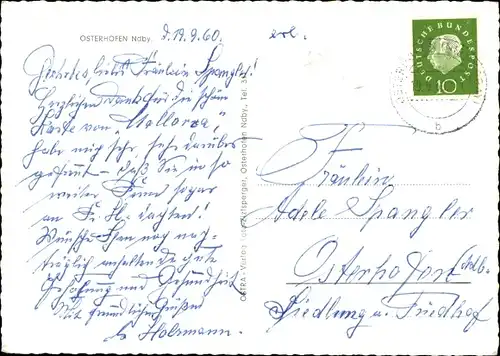 OSTERHOFEN Ndby. d. 19.9.60. erl.
Geehrtes, liebes Fräulein Spangler!
Herzlichen Dank für die schöne
Karte von "Mallorca",
habe mich sehr, sehr darüber
gefreut - daß Sie in so
weiter Ferne sogar
an Fr. H. dachten!
Wünsche Ihnen noch nach-
träglich anhaltende gute
Erholung und Gesundheit
Mit freundlichen Grüßen
Holzmann.
OEFRA-Verlag Osterhofen Ndby., Tel.
DEUTSCHE BUNDESPOST
10
b
Fräulein
Adele Spangler
Osterhofen (Ndb.
Siedlung a. Friedhof